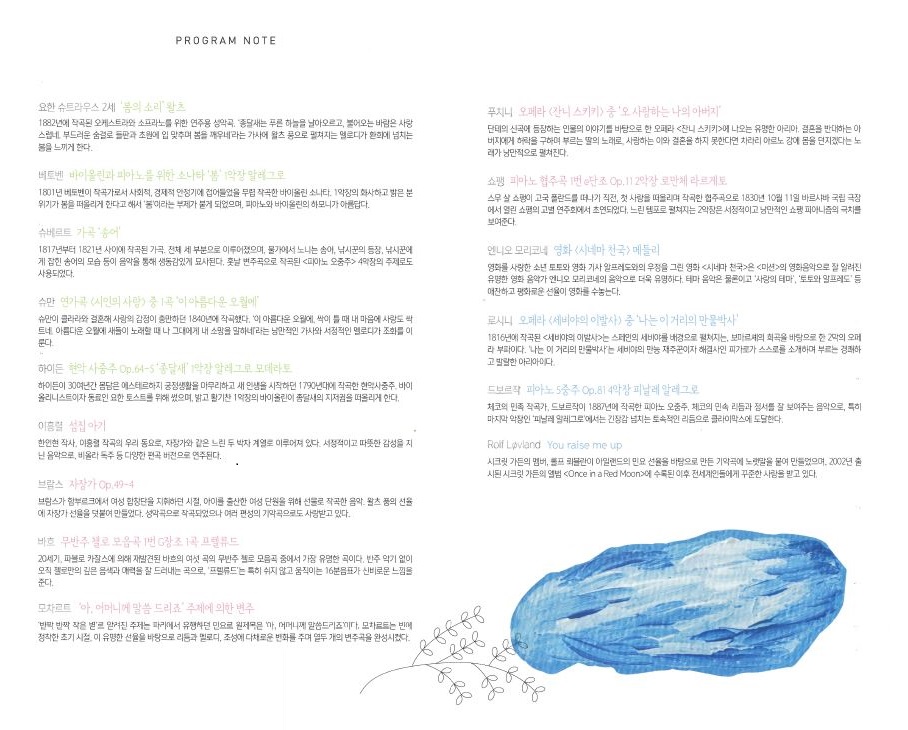 PROGRAM NOTE
요한 슈트라우스 2세 '봄의 소리' 왈츠
1882년에 작곡된 오케스트라와 소프라노를 위한 연주용 성악곡. '종달새는 푸른 하늘을 날아오르고, 불어오는 바람은 사랑
스럽네. 부드러운 숨결로 들판과 초원에 입 맞추며 봄을 깨우네'라는 가사에 왈츠 풍으로 펼쳐지는 멜로디가 환희에 넘치는
봄을 느끼게 한다.
베토벤 바이올린과 피아노를 위한 소나타 '봄' 1악장 알레그로
1801년 베토벤이 작곡가로서 사회적, 경제적 안정기에 접어들었을 무렵 작곡한 바이올린 소나타. 1악장의 화사하고 밝은 분
위기가 봄을 떠올리게 한다고 해서 '봄'이라는 부제가 붙게 되었으며, 피아노와 바이올린의 하모니가 아름답다.
슈베르트 가곡 '숭어'
1817년부터 1821년 사이에 작곡된 가곡. 전체 세 부분으로 이루어졌으며, 물가에서 노니는 송어, 낚시꾼의 등장, 낚시꾼에
게 잡힌 송어의 모습 등이 음악을 통해 생동감있게 묘사된다. 훗날 변주곡으로 작곡된 <피아노 오중주> 4악장의 주제로도
사용되었다.
슈만 연가곡 <시인의 사랑> 중 1곡 '이 아름다운 오월에'
슈만이 클라라와 결혼해 사랑의 감정이 충만하던 1840년에 작곡했다. '이 아름다운 오월에, 싹이 틀 때 내 마음에 사랑도 싹
트네. 아름다운 오월에 새들이 노래할 때 나 그대에게 내 소망을 말하네'라는 낭만적인 가사와 서정적인 멜로디가 조화를 이
룬다.
하이든 현악 사중주 Op.64-5 '종달새' 1악장 알레그로 모데라토
하이든이 30여년간 몸담은 에스테르하지 궁정생활을 마무리하고 새 인생을 시작하던 1790년대에 작곡한 현악사중주. 바이
올리니스트이자 동료인 요한 토스트를 위해 썼으며, 밝고 활기찬 1악장의 바이올린이 종달새의 지저귐을 떠올리게 한다.
이흥렬 섬집 아기
한인현 작사, 이흥렬 작곡의 우리 동요로, 자장가와 같은 느린 두 박자 계열로 이루어져 있다. 서정적이고 따뜻한 감성을 지
닌 음악으로, 비올라 독주 등 다양한 편곡 버전으로 연주된다.
브람스 자장가 Op.49-4
브람스가 함부르크에서 여성 합창단을 지휘하던 시절, 아이를 출산한 여성 단원을 위해 선물로 작곡한 음악. 왈츠 풍의 선율
에 자장가 선율을 덧붙여 만들었다. 성악곡으로 작곡되었으나 여러 편성의 기악곡으로도 사랑받고 있다.
바흐 무반주 첼로 모음곡 1번 G장조 1곡 프렐류드
20세기, 파블로 카잘스에 의해 재발견된 바흐의 여섯 곡의 무반주 첼로 모음곡 중에서 가장 유명한 곡이다. 반주 악기 없이
오직 첼로만의 깊은 음색과 매력을 잘 드러내는 곡으로, '프렐류드'는 특히 쉬지 않고 움직이는 16분음표가 신비로운 느낌을
준다.
모차르트 '아, 어머니께 말씀 드리죠' 주제에 의한 변주
'반짝 반짝 작은 별'로 알려진 주제는 파리에서 유행하던 민요로 원제목은 '아, 어머니께 말씀드리죠'이다. 모차르트는 빈에
정착한 초기 시절, 이 유명한 선율을 바탕으로 리듬과 멜로디, 조성에 다채로운 변화를 주며 열두 개의 변주곡을 완성시켰다.
푸치니 오페라 <잔니 스키키> 중 '오 사랑하는 나의 아버지'
단테의 신곡에 등장하는 인물의 이야기를 바탕으로 한 오페라 <잔니 스키키>에 나오는 유명한 아리아. 결혼을 반대하는 아
버지에게 허락을 구하며 부르는 딸의 노래로, 사랑하는 이와 결혼을 하지 못한다면 차라리 아르노 강에 몸을 던지겠다는 노
래가 낭만적으로 펼쳐진다.
쇼팽 피아노 협주곡 1번 e단조 Op.11 2악장 로만체 라르게토
스무 살 쇼팽이 고국 폴란드를 떠나기 직전, 첫 사랑을 떠올리며 작곡한 협주곡으로 1830년 10월 11일 바르샤바 국립 극장
에서 열린 쇼팽의 고별 연주회에서 초연되었다. 느린 템포로 펼쳐지는 2악장은 서정적이고 낭만적인 쇼팽 피아니즘의 극치를
보여준다.
엔니오 모리코네 영화 <시네마 천국> 메들리
영화를 사랑한 소년 토토와 영화 기사 알프레도와의 우정을 그린 영화 <시네마 천국>은 <미션>의 영화음악으로 잘 알려진
유명한 영화 음악가 엔니오 모리코네의 음악으로 더욱 유명하다. 테마 음악은 물론이고 '사랑의 테마', '토토와 알프레도' 등
애잔하고 평화로운 선율이 영화를 수놓는다.
로시니 오페라 <세비야의 이발사> 중 '나는 이 거리의 만물박사'
1816년에 작곡된 <세비야의 이발사>는 스페인의 세비야를 배경으로 펼쳐지는, 보마르셰의 희곡을 바탕으로 한 2막의 오페
라 부파이다. '나는 이 거리의 만물박사'는 세비야의 만능 재주꾼이자 해결사인 피가로가 스스로를 소개하며 부르는 경쾌하
고 발랄한 아리아이다.
드보르작 피아노 5중주 Op.81 4악장 피날레 알레그로
체코의 민족 작곡가, 드보르작이 1887년에 작곡한 피아노 오중주. 체코의 민속 리듬과 정서를 잘 보여주는 음악으로, 특히
마지막 악장인 '피날레 알레그로'에서는 긴장감 넘치는 토속적인 리듬으로 클라이막스에 도달한다.
Rolf Løvland You raise me up
시크릿 가든의 멤버, 롤프 뢰블란이 아일랜드의 민요 선율을 바탕으로 만든 기악곡에 노랫말을 붙여 만들었으며, 2002년 출
시된 시크릿 가든의 앨범 <Once in a Red Moon>에 수록된 이후 전세계인들에게 꾸준한 사랑을 받고 있다.